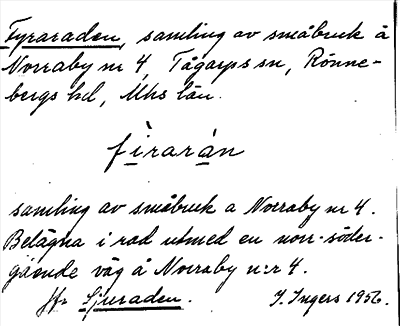 Fyraraden, samling av småbruk å
Norraby nr 4, Tågarps sn, Rönne-
bergs hd, Mhs län.
fìrarán
samling av småbruk a Norraby nr 4.
Belägna i rad utmed en norr-söder-
gående väg å Norraby n:r 4.
Jfr Sjuraden. I. Ingers 1956.